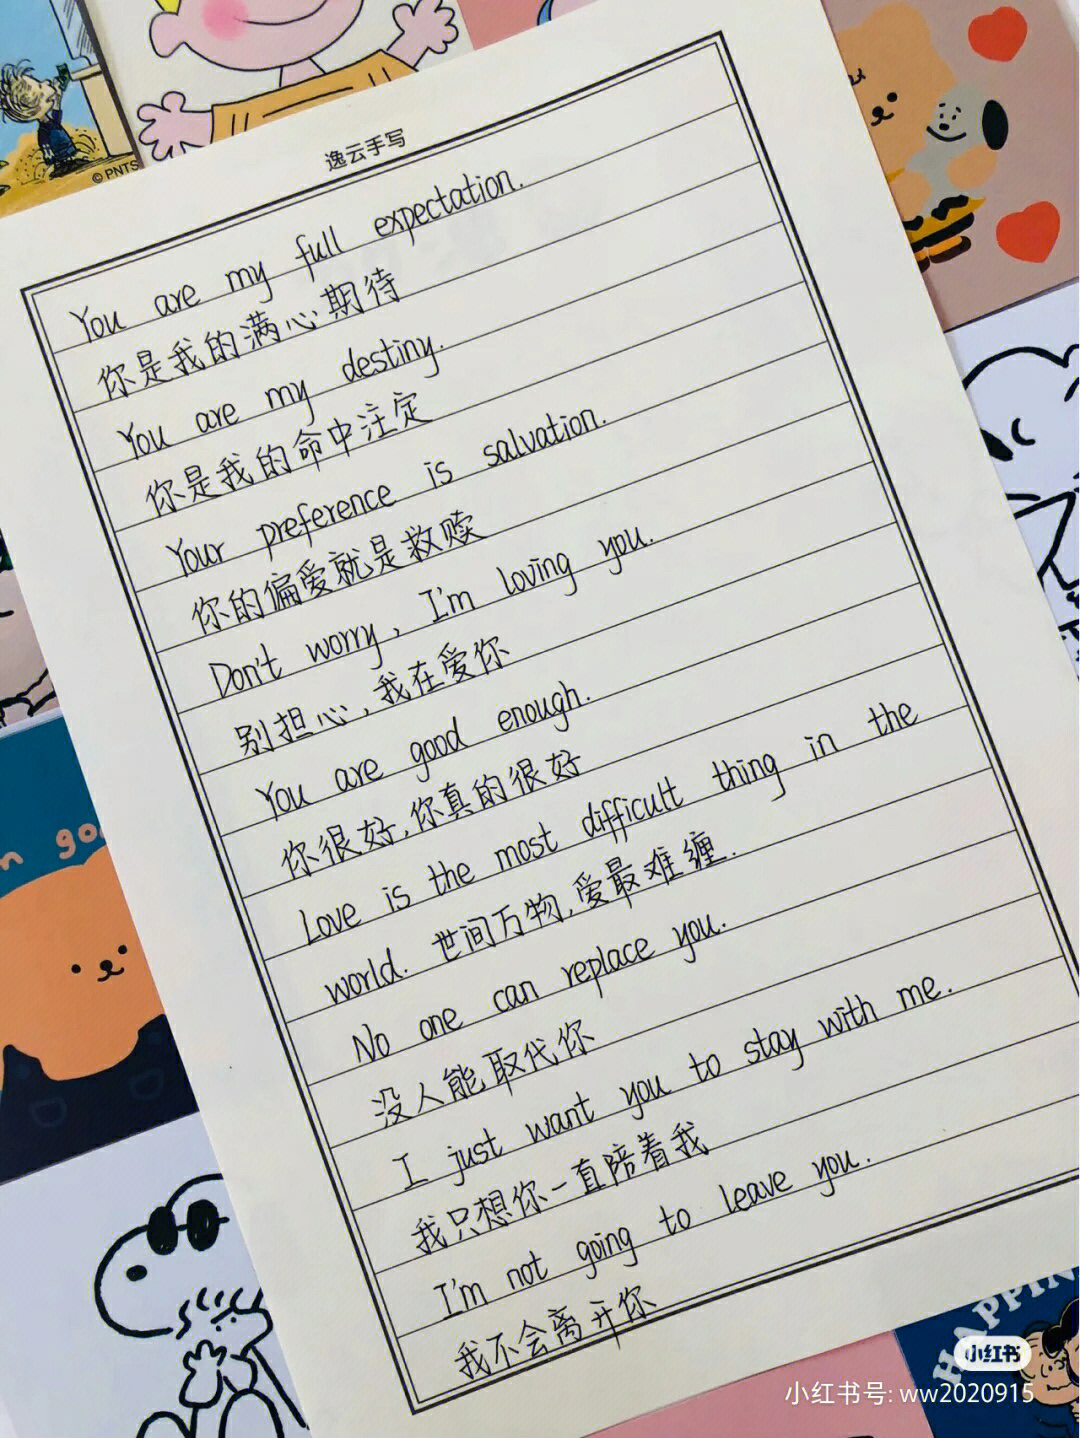 © PNTS
逸云手写
You are my full expectation.
你是我的满心期待
You are my destiny.
你是我的命中注定
Your preference is salvation.
你的偏爱就是救赎
Don't worry, I'm loving you.
别担心,我在爱你
You are good enough.
你很好,你真的很好
Love is the most difficult thing in the
world. 世间万物,爱最难缠.
No one can replace you.
没人能取代你
I just want you to stay with me.
我只想你一直陪着我
I'm not going to leave you.
我不会离开你
小红书
小红书号: ww2020915